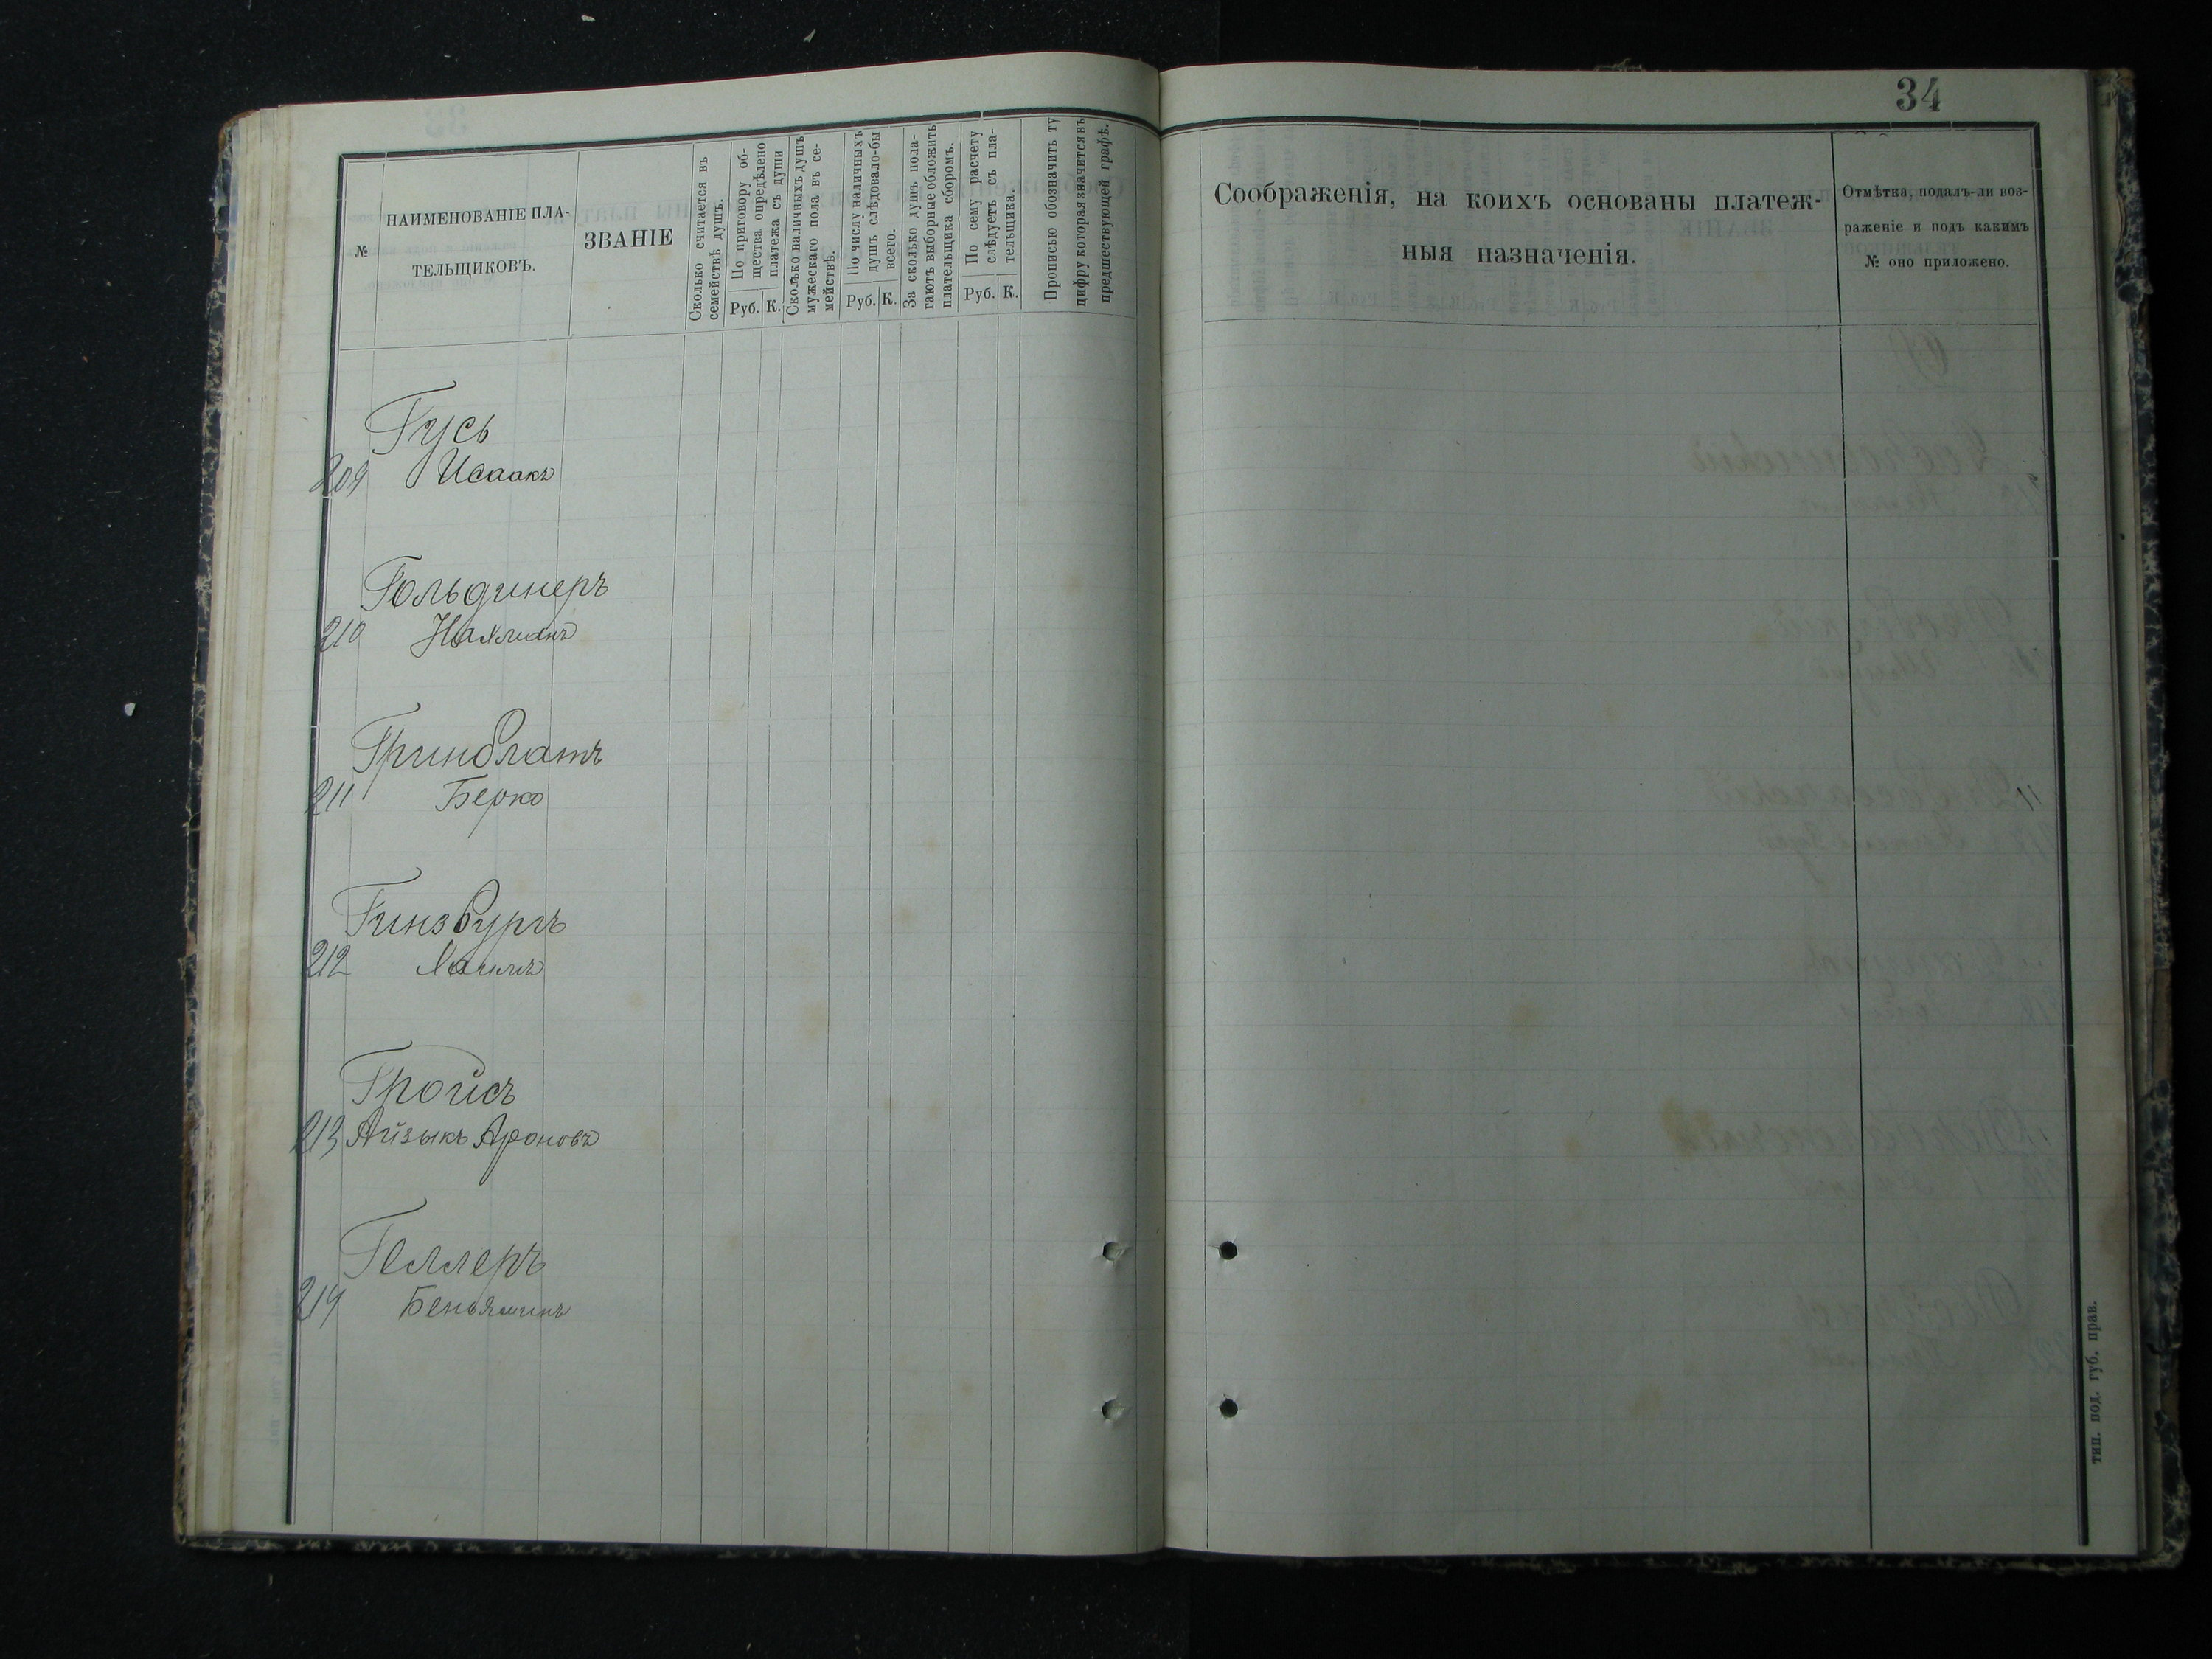 34
№
НАИМЕНОВАНІЕ ПЛА-
ТЕЛЬЩИКОВЪ.
ЗВАНІЕ
Сколько считается въ
семействѣ душъ.
По приговору об-
щества опредѣлено
платежа съ души
Руб. К.
Сколько наличныхъ душъ
мужескаго пола въ се-
мействѣ.
По числу наличныхъ
душъ слѣдовало-бы
всего.
Руб. К.
За сколько душъ пола-
гаютъ выборные обложить
плательщика сборомъ.
По сему расчету
слѣдуетъ съ пла-
тельщика.
Руб. К.
Прописью обозначить ту
цифру которая значится въ
предшествующей графѣ.
Соображенія, на коихъ основаны платеж-
ныя назначенія.
Отмѣтка, подалъ-ли воз-
раженіе и подъ какимъ
№ оно приложено.
Гусь
209 Исаакъ
Гольдинеръ
210 Нахманъ
Гринблатъ
211 Берко
Гинзбургъ
212 Хаимъ
Гройсъ
213 Айзыкъ Ароновъ
Геллеръ
214 Беньяминъ
тип. под. губ. прав.